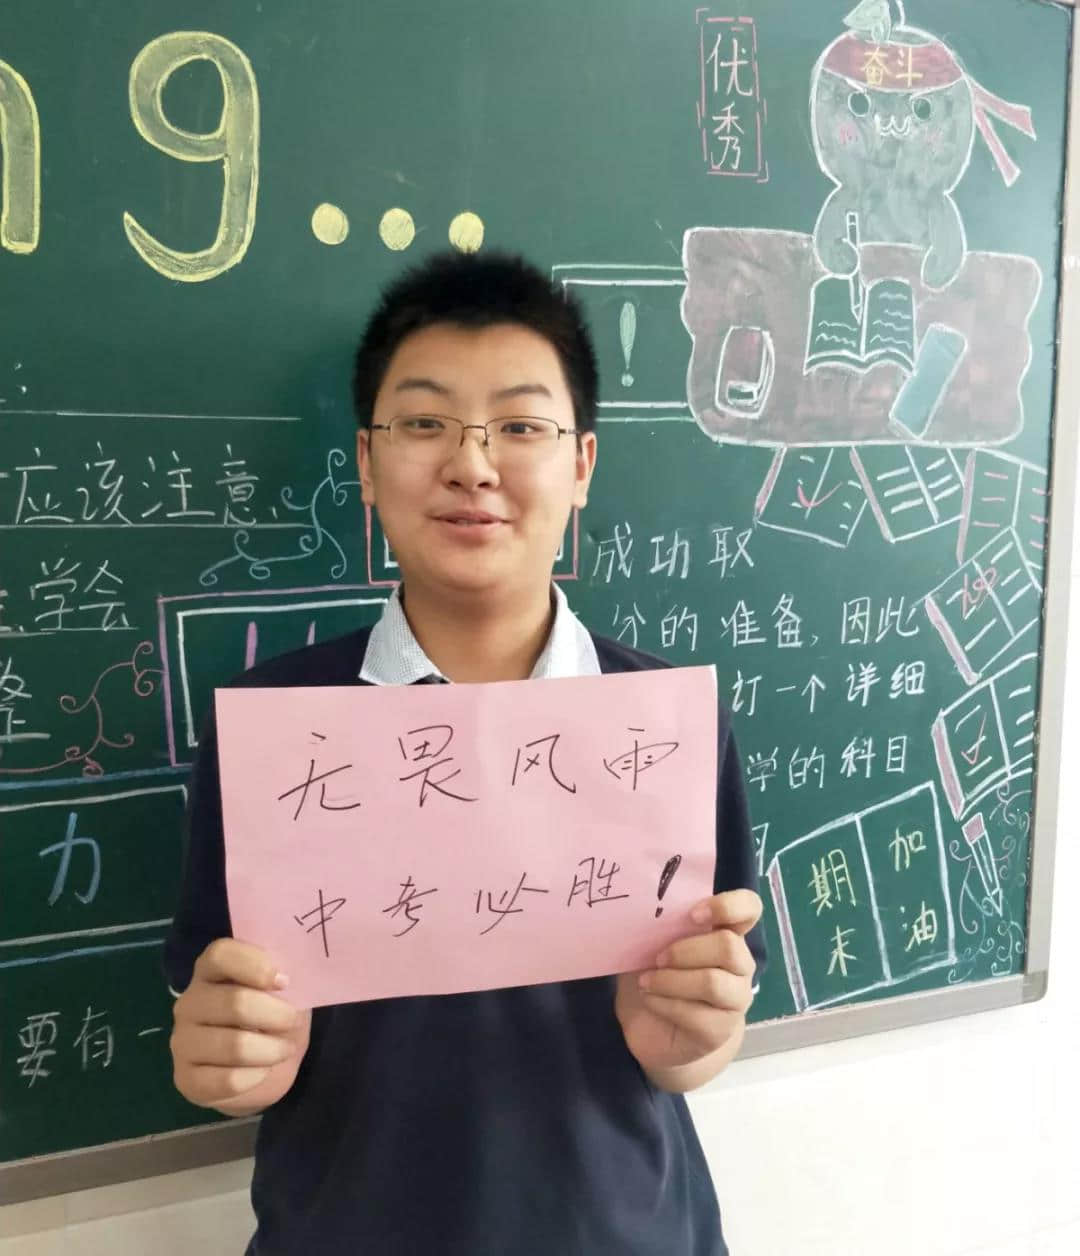 ng...
优秀
奋斗
!
:
应该注意、
学会
整
力
要有一
成功取
分的准备,因此
订一个详细
学的科目
期末
加油
100
无畏风雨
中考必胜!